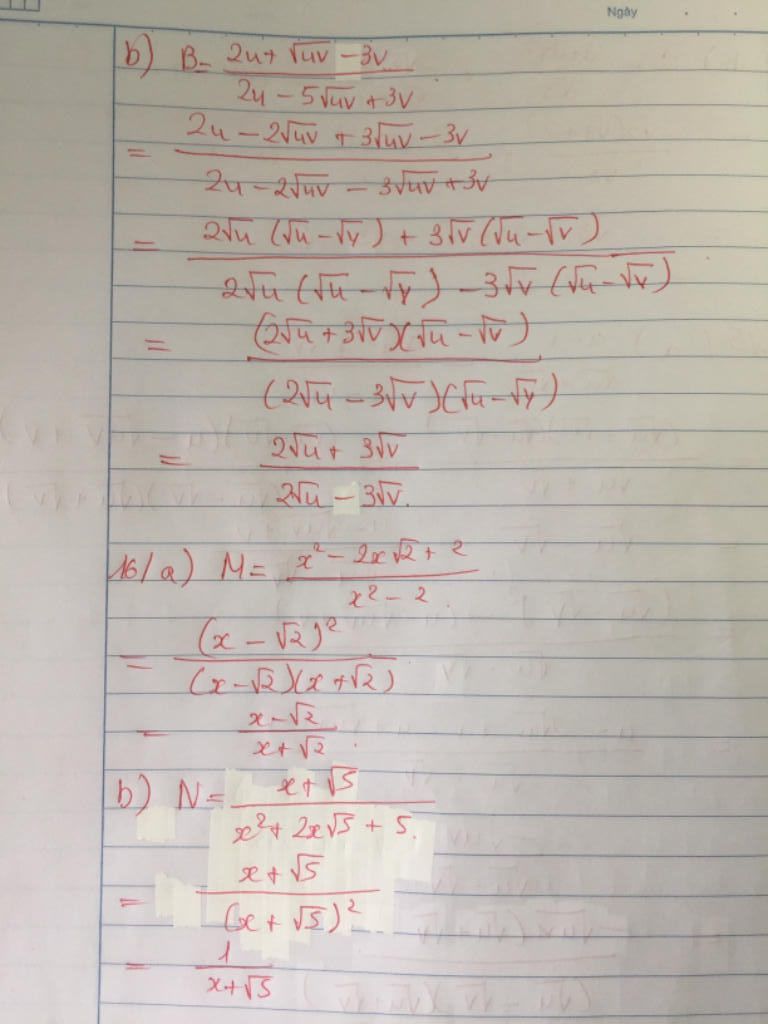 Ngày
b) B = (2u + √uv − 3v) / (2u − 5√uv + 3v)
= (2u − 2√uv + 3√uv − 3v) / (2u − 2√uv − 3√uv + 3v)
= (2√u (√u − √v) + 3√v (√u − √v)) / (2√u (√u − √v) − 3√v (√u − √v))
= ((2√u + 3√v)(√u − √v)) / ((2√u − 3√v)(√u − √v))
= (2√u + 3√v) / (2√u − 3√v).
16/ a) M = (x² − 2x√2 + 2) / (x² − 2.)
= (x − √2)² / ((x − √2)(x + √2))
= (x − √2) / (x + √2).
b) N = (x + √5) / (x² + 2x√5 + 5.)
= (x + √5) / (x + √5)²
= 1 / (x + √5)